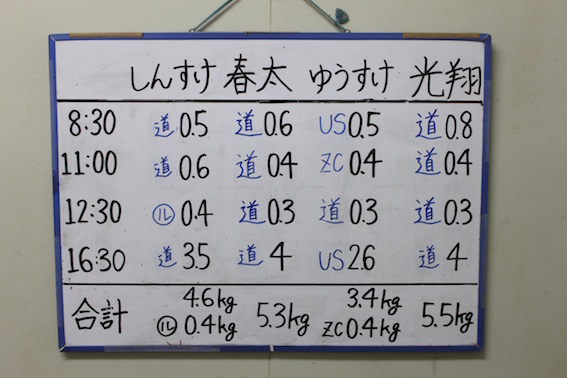 しんすけ 春太 ゆうすけ 光翔
8:30 道0.5 道0.6 US0.5 道0.8
11:00 道0.6 道0.4 ZC0.4 道0.4
12:30 ル0.4 道0.3 道0.3 道0.3
16:30 道3.5 道4 US2.6 道4
合計 4.6kg ル0.4kg 5.3kg 3.4kg ZC0.4kg 5.5kg